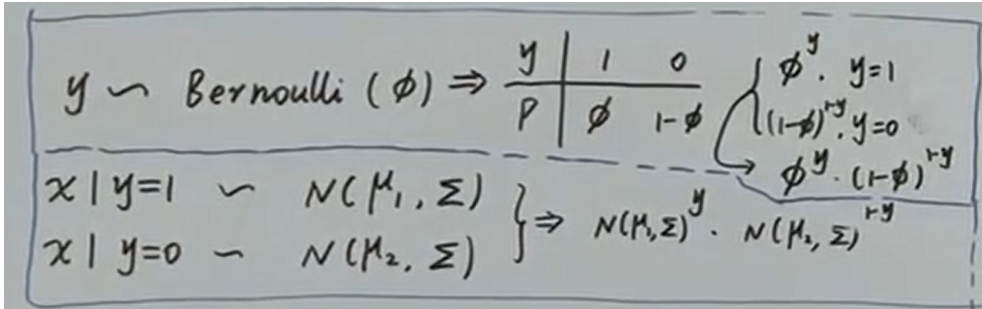 y ~ Bernoulli (ϕ) ⇒
y | 1 0
P | ϕ 1-ϕ
ϕ^y. y=1
(1-ϕ)^{1-y}. y=0
ϕ^y · (1-ϕ)^{1-y}
x | y=1 ~ N(μ₁, Σ)
x | y=0 ~ N(μ₂, Σ)
} ⇒ N(μ₁,Σ)^y · N(μ₂, Σ)^{1-y}